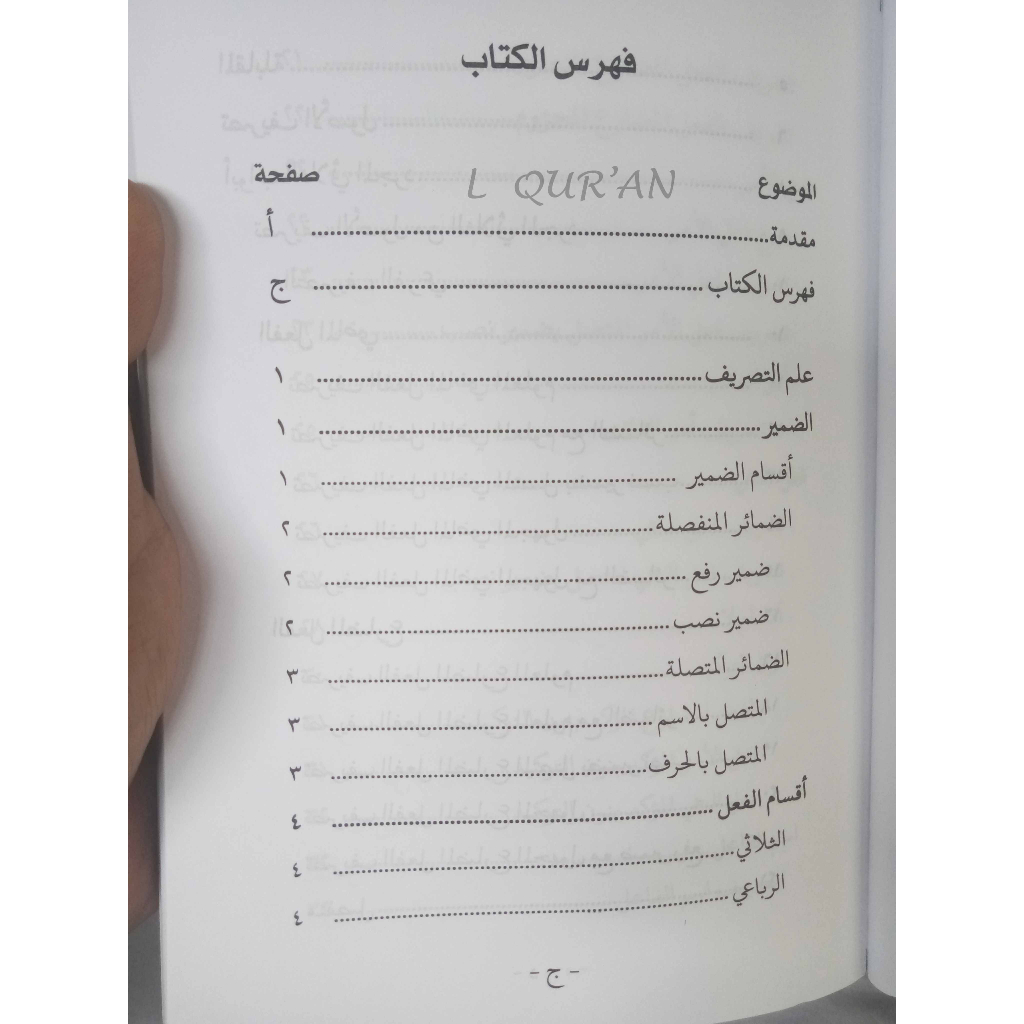 فهرس الكتاب
الموضوع صفحة
L QUR'AN
مقدمة أ
فهرس الكتاب ج
علم التصريف ١
الضمير ١
أقسام الضمير ١
الضمائر المنفصلة ٢
ضمير رفع ٢
ضمير نصب ٢
الضمائر المتصلة ٣
المتصل بالاسم ٣
المتصل بالحرف ٣
أقسام الفعل ٤
الثلاثي ٤
الرباعي ٤
- ج -